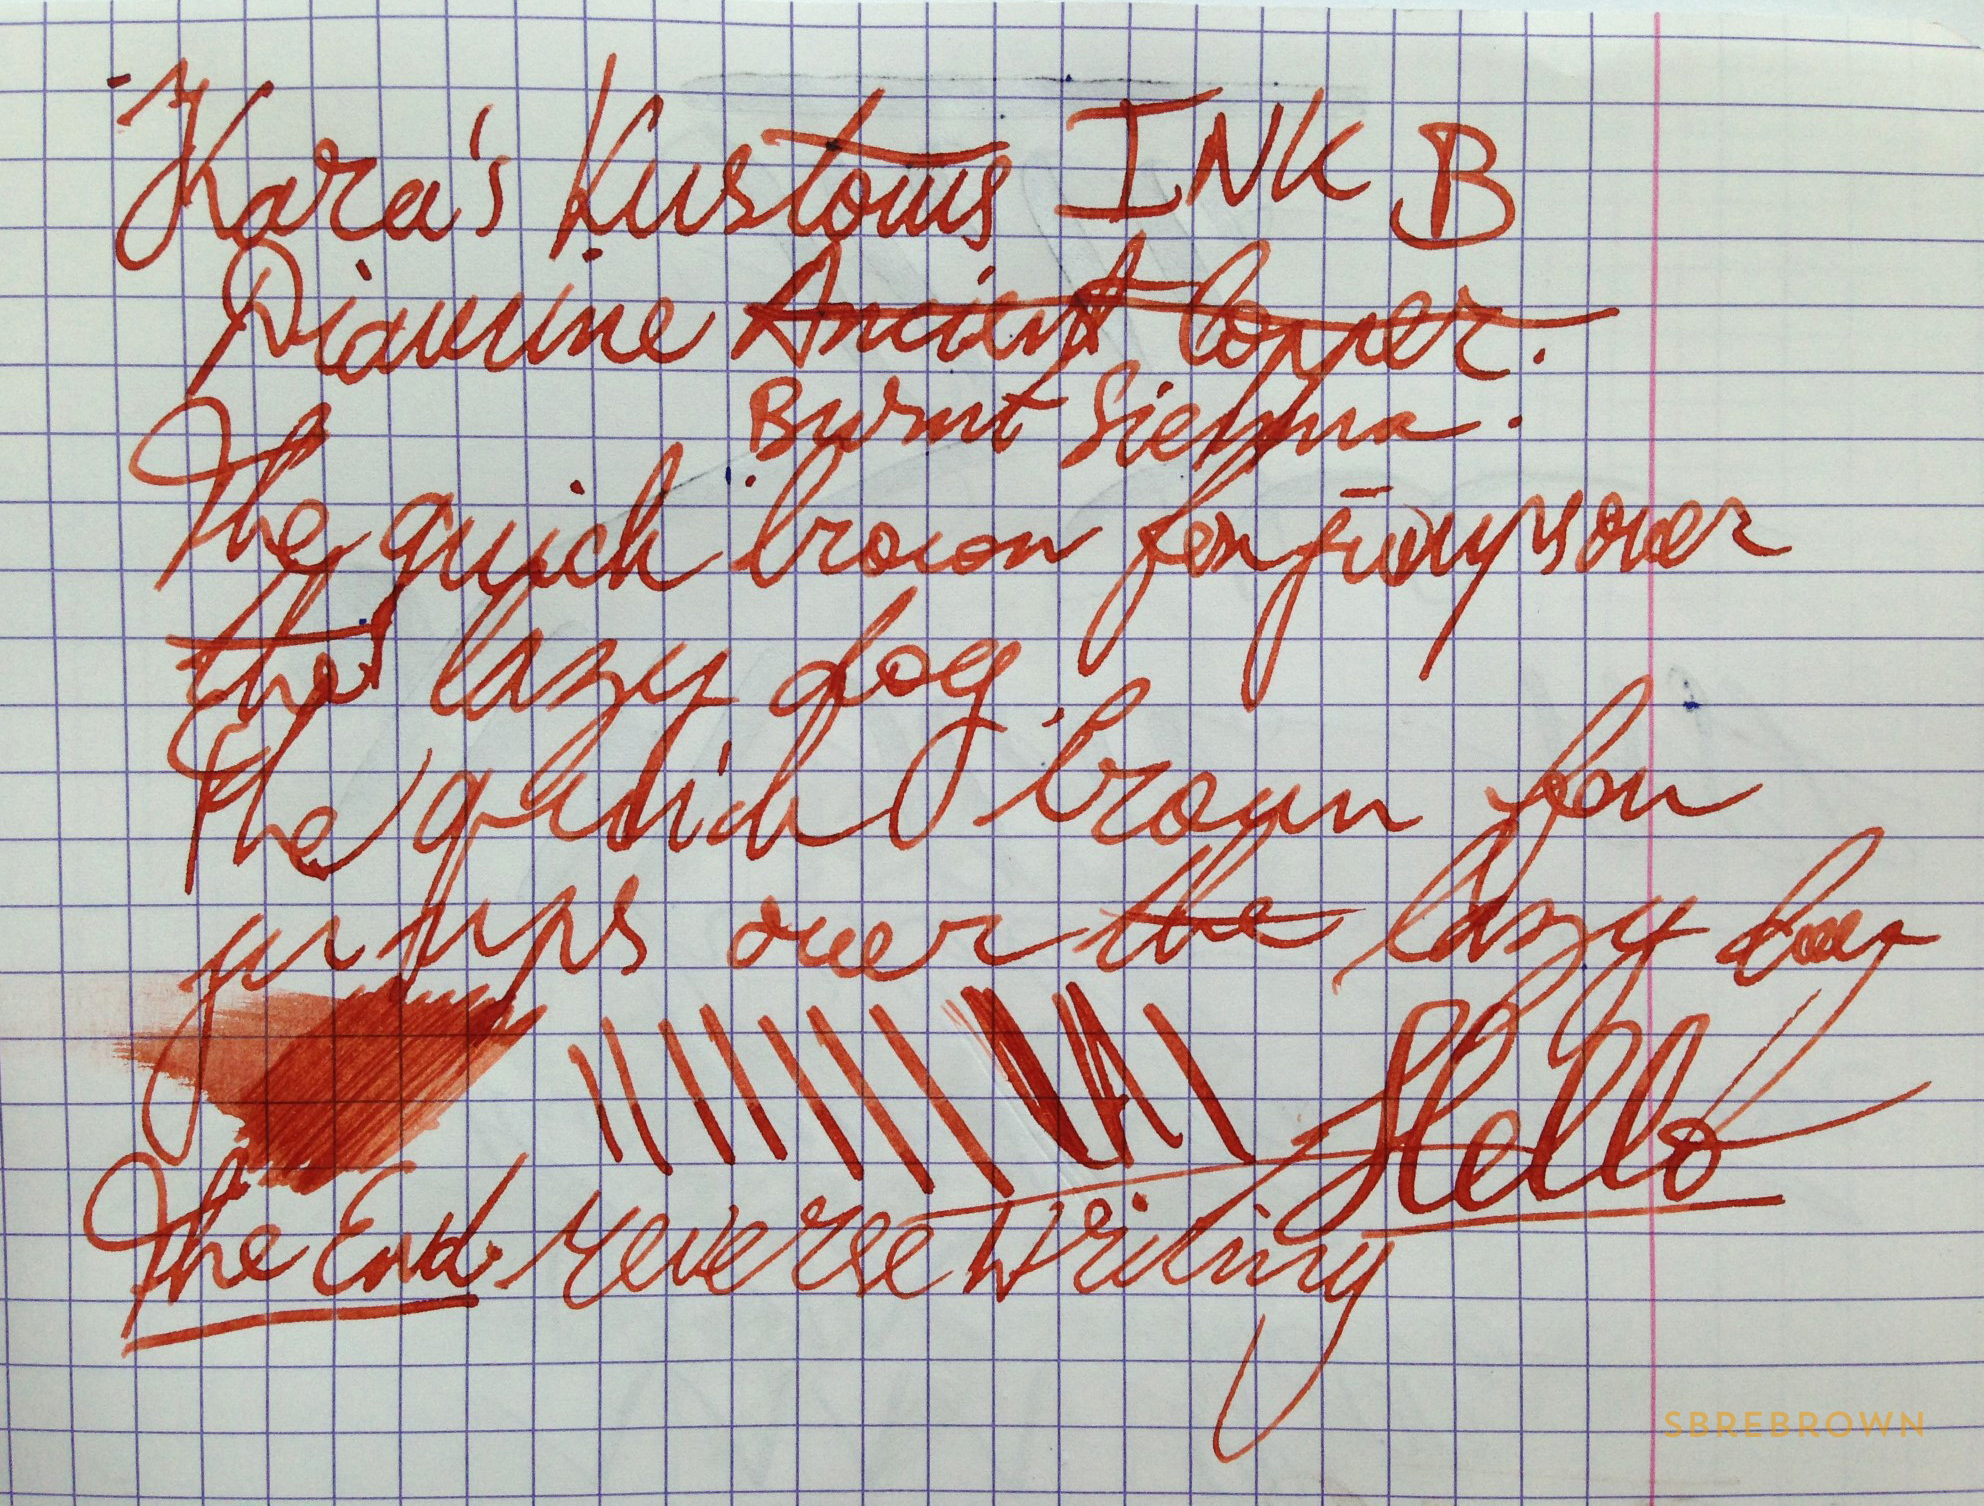 Kara's Kustoms INK B
Diamine Ancient Copper.
Burnt Sienna.
The quick brown fox jumps over
the lazy dog
The quick brown fox
jumps over the lazy dog
Hello
The End. reverse writing
SBREBROWN